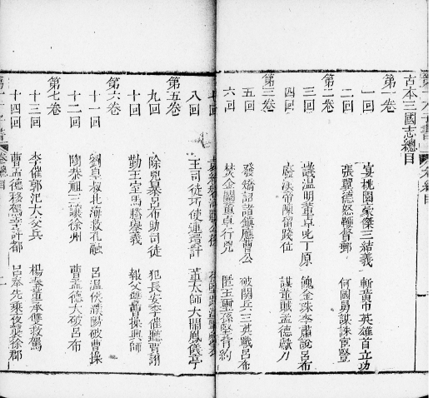 古本三國志總目
第一卷
一回 宴桃園豪傑三結義 斬黃巾英雄首立功
二回 張翼德怒鞭督郵 何國舅謀誅宦豎
第二卷
三回 議溫明董卓叱丁原 餽金珠李肅說呂布
四回 廢漢帝陳留踐位 謀董賊孟德獻刀
第三卷
五回 發矯詔諸鎮應曹公 破關兵三英戰呂布
六回 焚金闕董卓行兇 匿玉璽孫堅背約
七回
八回 王司徒巧使連環計 董太師大鬧鳳儀亭
第五卷
九回 除兇暴呂布助司徒 犯長安李傕聽賈詡
十回 勤王室馬騰舉義 報父讐曹操興師
第六卷
十一回 劉皇叔北海救孔融 呂溫侯濮陽破曹操
十二回 陶恭祖三讓徐州 曹孟德大破呂布
第七卷
十三回 李傕郭汜大交兵 楊奉董承雙救駕
十四回 曹孟德移駕幸許都 呂奉先乘夜襲徐郡